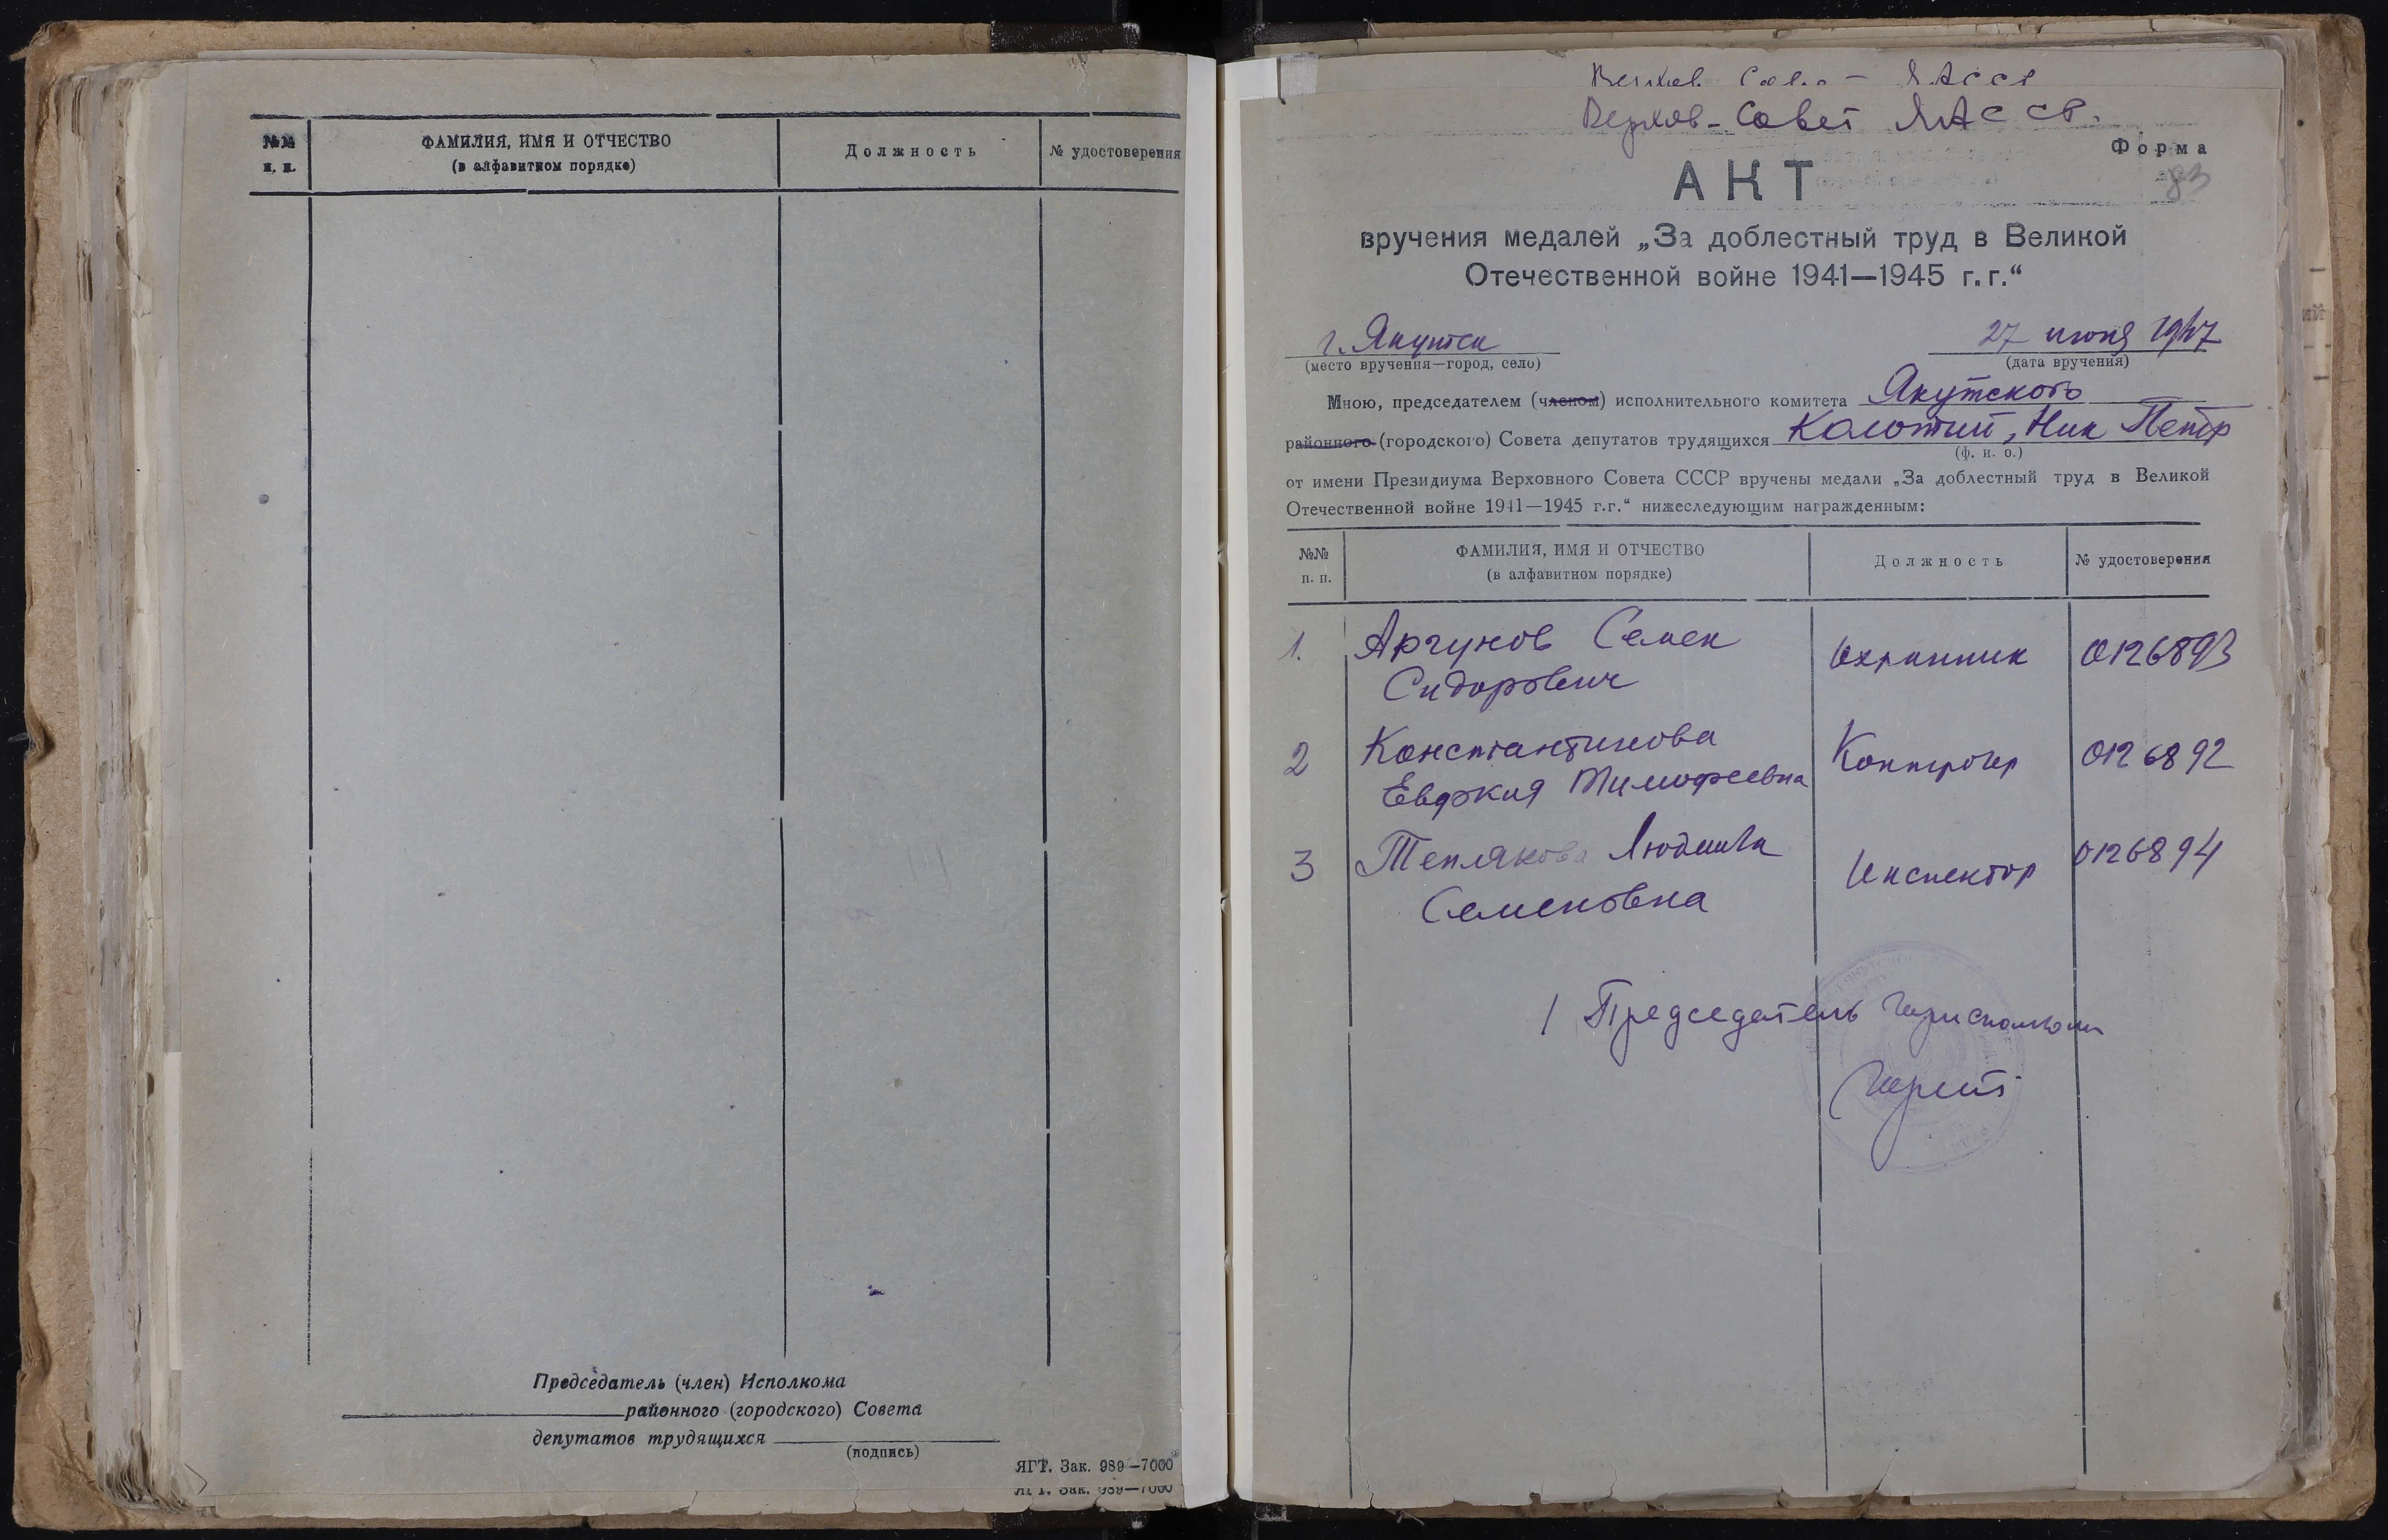 №№
п. п.
ФАМИЛИЯ, ИМЯ И ОТЧЕСТВО
(в алфавитном порядке)
Должность
№ удостоверения
Председатель (член) Исполкома
районного (городского) Совета
депутатов трудящихся
(подпись)
ЯГТ. Зак. 989—7000
ЯГТ. Зак. 989—7000
Верхов. Сов. — ЯАССР
Верхов-Совет ЯАССР.
Форма
83
АКТ
вручения медалей „За доблестный труд в Великой
Отечественной войне 1941—1945 г.г.“
г. Якутск
27 июня 1947
(место вручения—город, село)
(дата вручения)
Мною, председателем (членом) исполнительного комитета Якутского
районного (городского) Совета депутатов трудящихся Колотий, Ник Петр
(ф. и. о.)
от имени Президиума Верховного Совета СССР вручены медали „За доблестный труд в Великой
Отечественной войне 1941—1945 г.г.“ нижеследующим награжденным:
№№
п. п.
ФАМИЛИЯ, ИМЯ И ОТЧЕСТВО
(в алфавитном порядке)
Должность
№ удостоверения
1. Аргунов Семен
Сидорович
Охранник 0126893
2 Константинова
Евдокия Тимофеевна
Контролер 0126892
3 Теплякова Людмила
Семеновна
Инспектор 0126894
/ Председатель Горисполкома